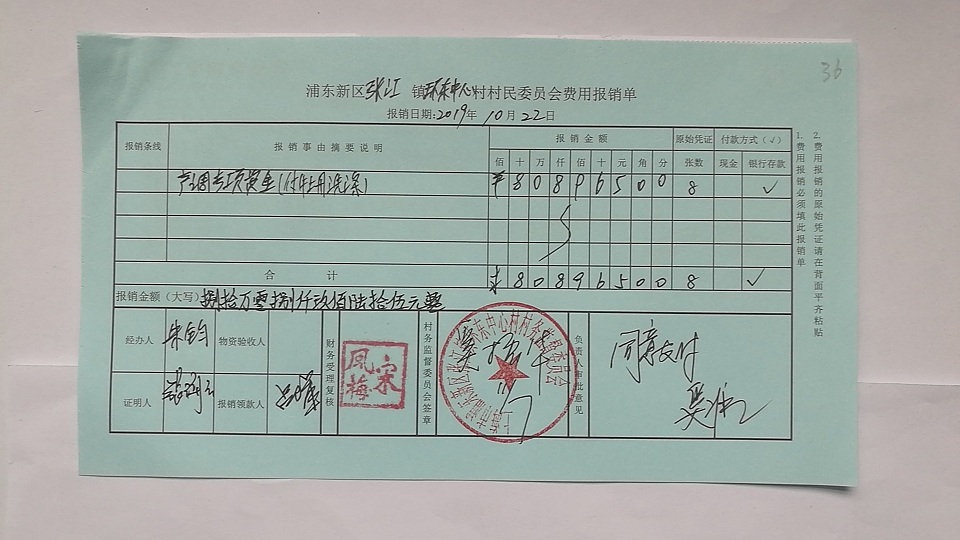 36
浦东新区张江镇环东中心村村民委员会费用报销单
报销日期:2019年10月22日
报销条线 报销事由摘要说明 报销金额 原始凭证 付款方式(√)
佰 十 万 仟 佰 十 元 角 分 张数 现金 银行存款
专项资金 ¥ 8 0 8 9 6 5 0 0 8 √
合计 ¥ 8 0 8 9 6 5 0 0 8 √
报销金额(大写)捌拾万零捌仟玖佰陆拾伍元整
经办人 朱钧 物资验收人 财务受理复核 宋凤梅 村务监督委员会签章 环东中心村村务监督委员会 负责人审批意见 同意支付
证明人 报销领款人
1.费用报销必须填此报销单
2.费用报销的原始凭证请在背面平齐粘贴